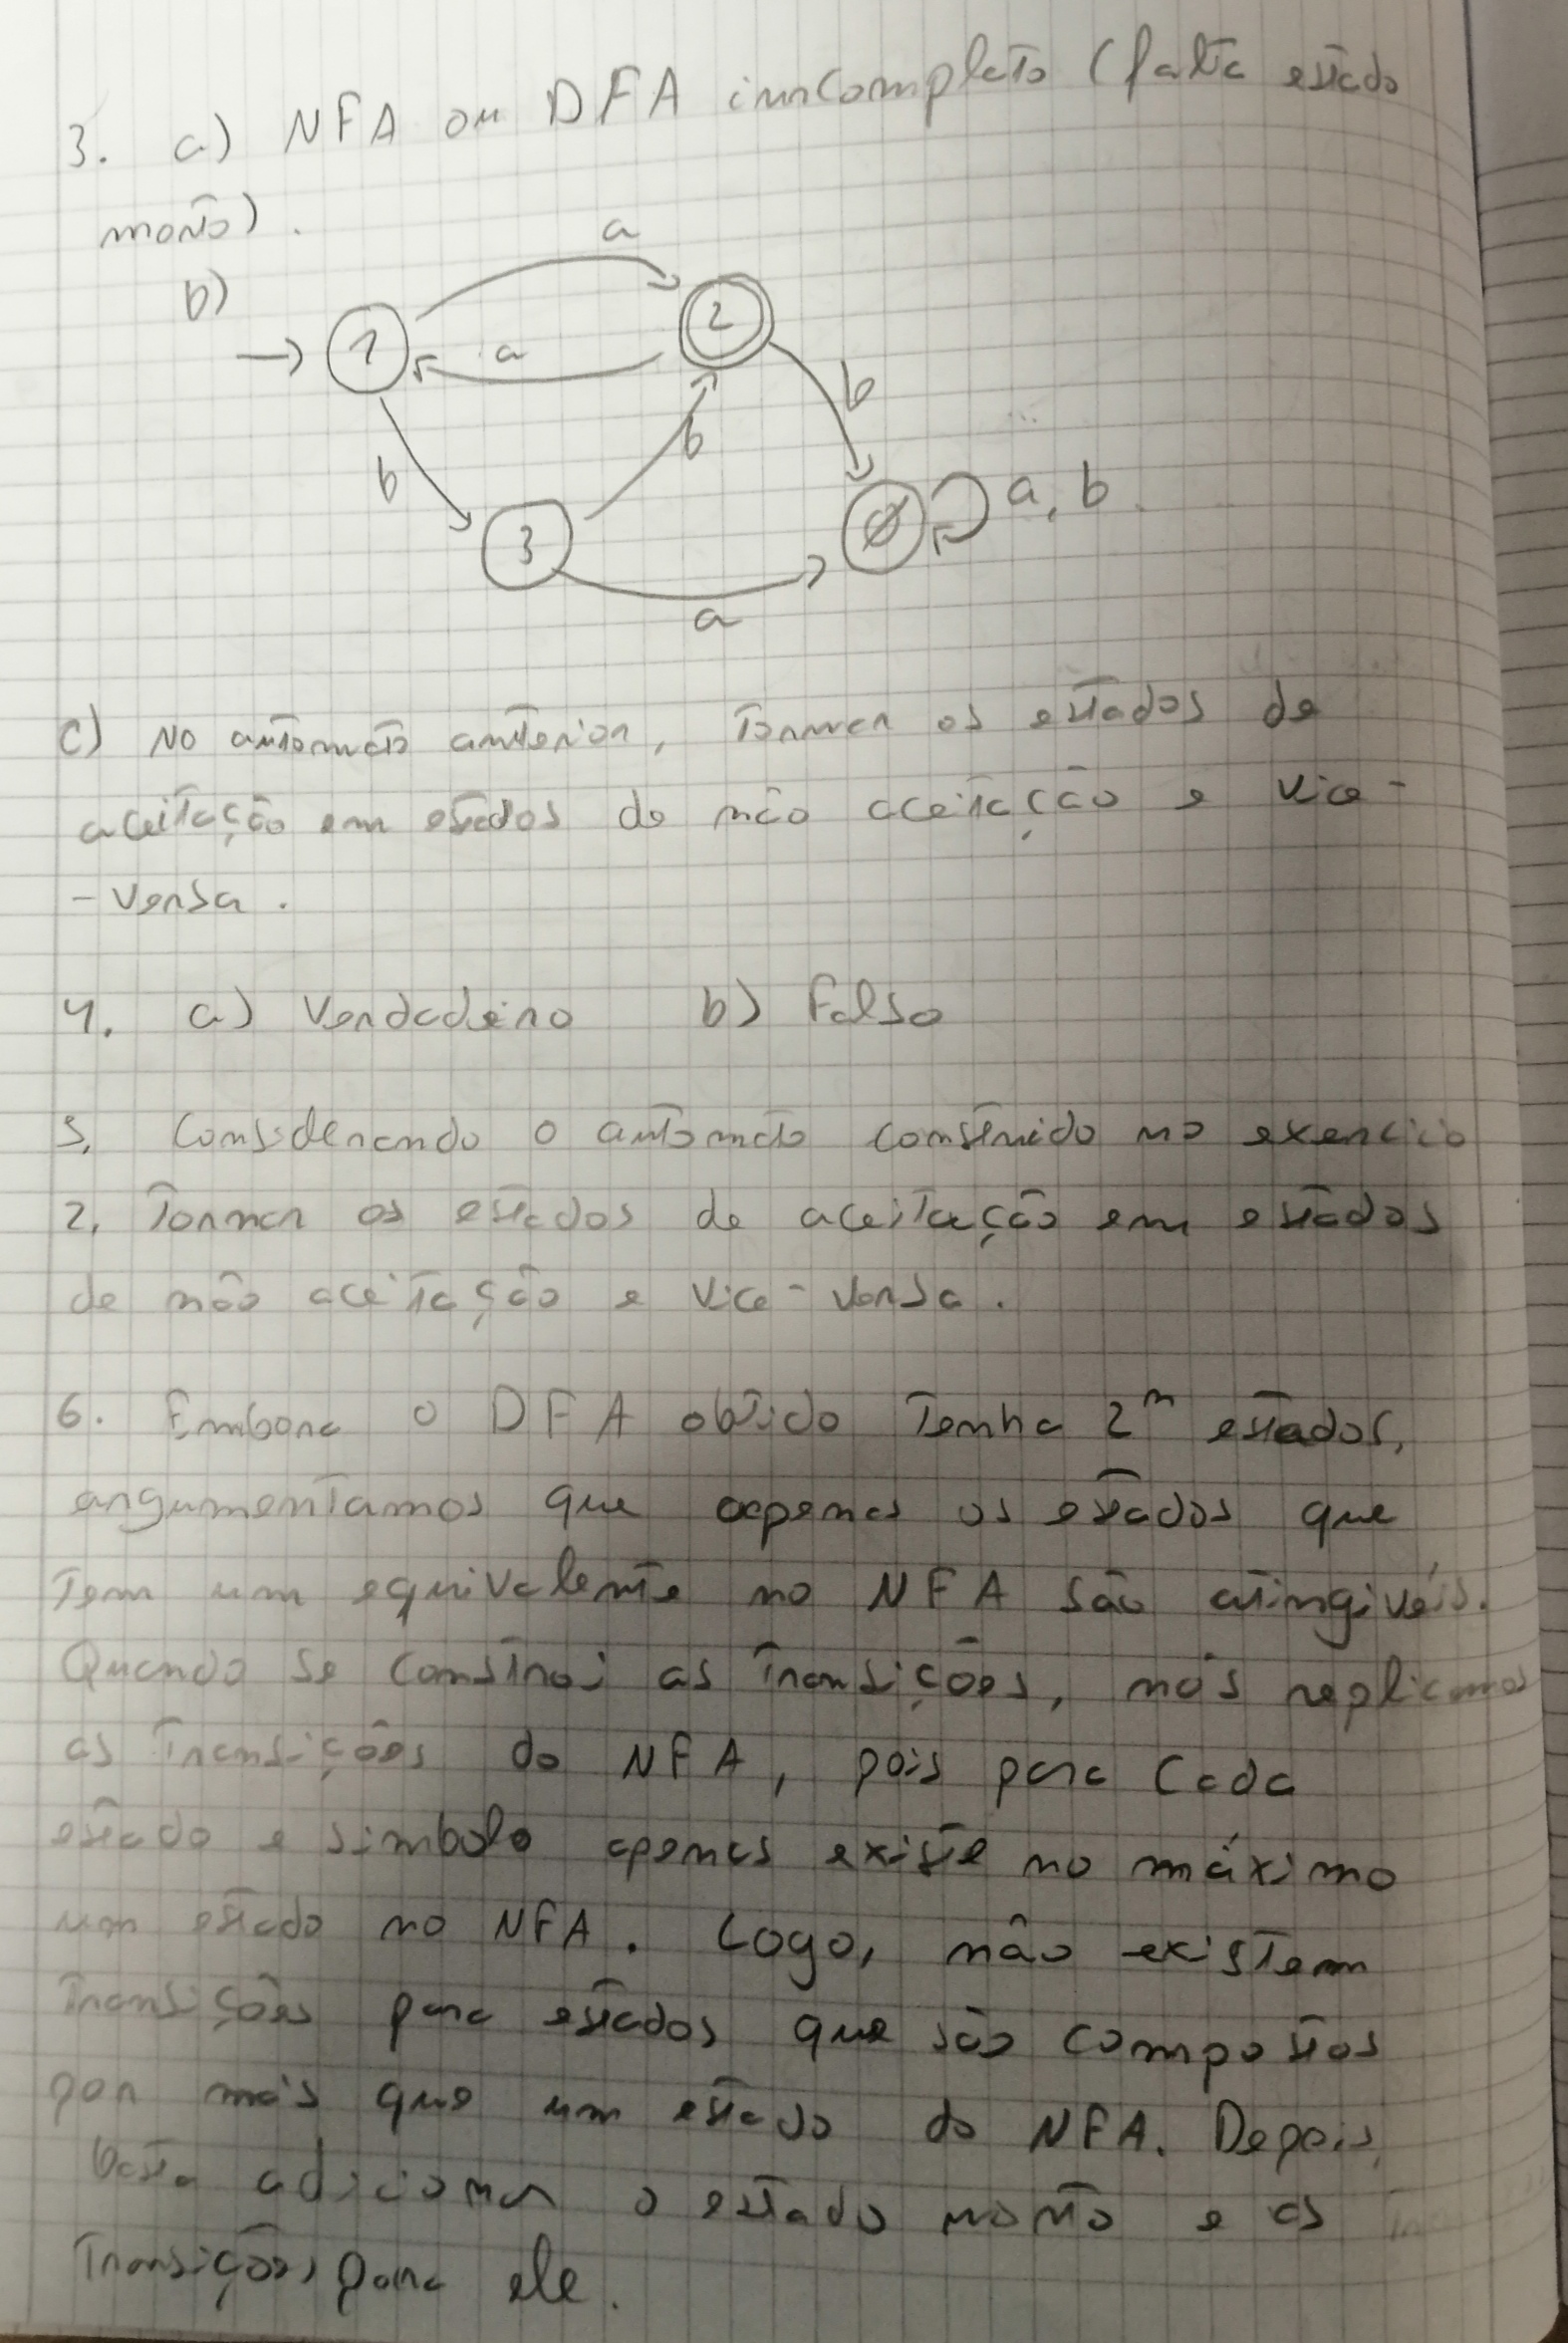 3. a) NFA ou DFA imcompleto (falta estado
morto).
b)
a
1
2
a
b
b
b
3
Ø
a, b.
a
c) No automato anterior, tornar os estados de
aceitação em estados de não aceitação e vice-
-versa.
4. a) Verdadeiro b) Falso
5. Considerando o automato construido no exercicio
2, tornar os estados de aceitação em estados
de não aceitação e vice-versa.
6. Embora o DFA obtido tenha 2ⁿ estados,
argumentamos que apenas os estados que
tem um equivalente no NFA são atingivéis.
Quando se constroi as transições, nós replicamos
as transições do NFA, pois para cada
estado e simbolo apenas existe no máximo
um estado no NFA. Logo, não existem
transições para estados que são compostos
por mais que um estado do NFA. Depois,
basta adicionar o estado morto e as
transições para ele.